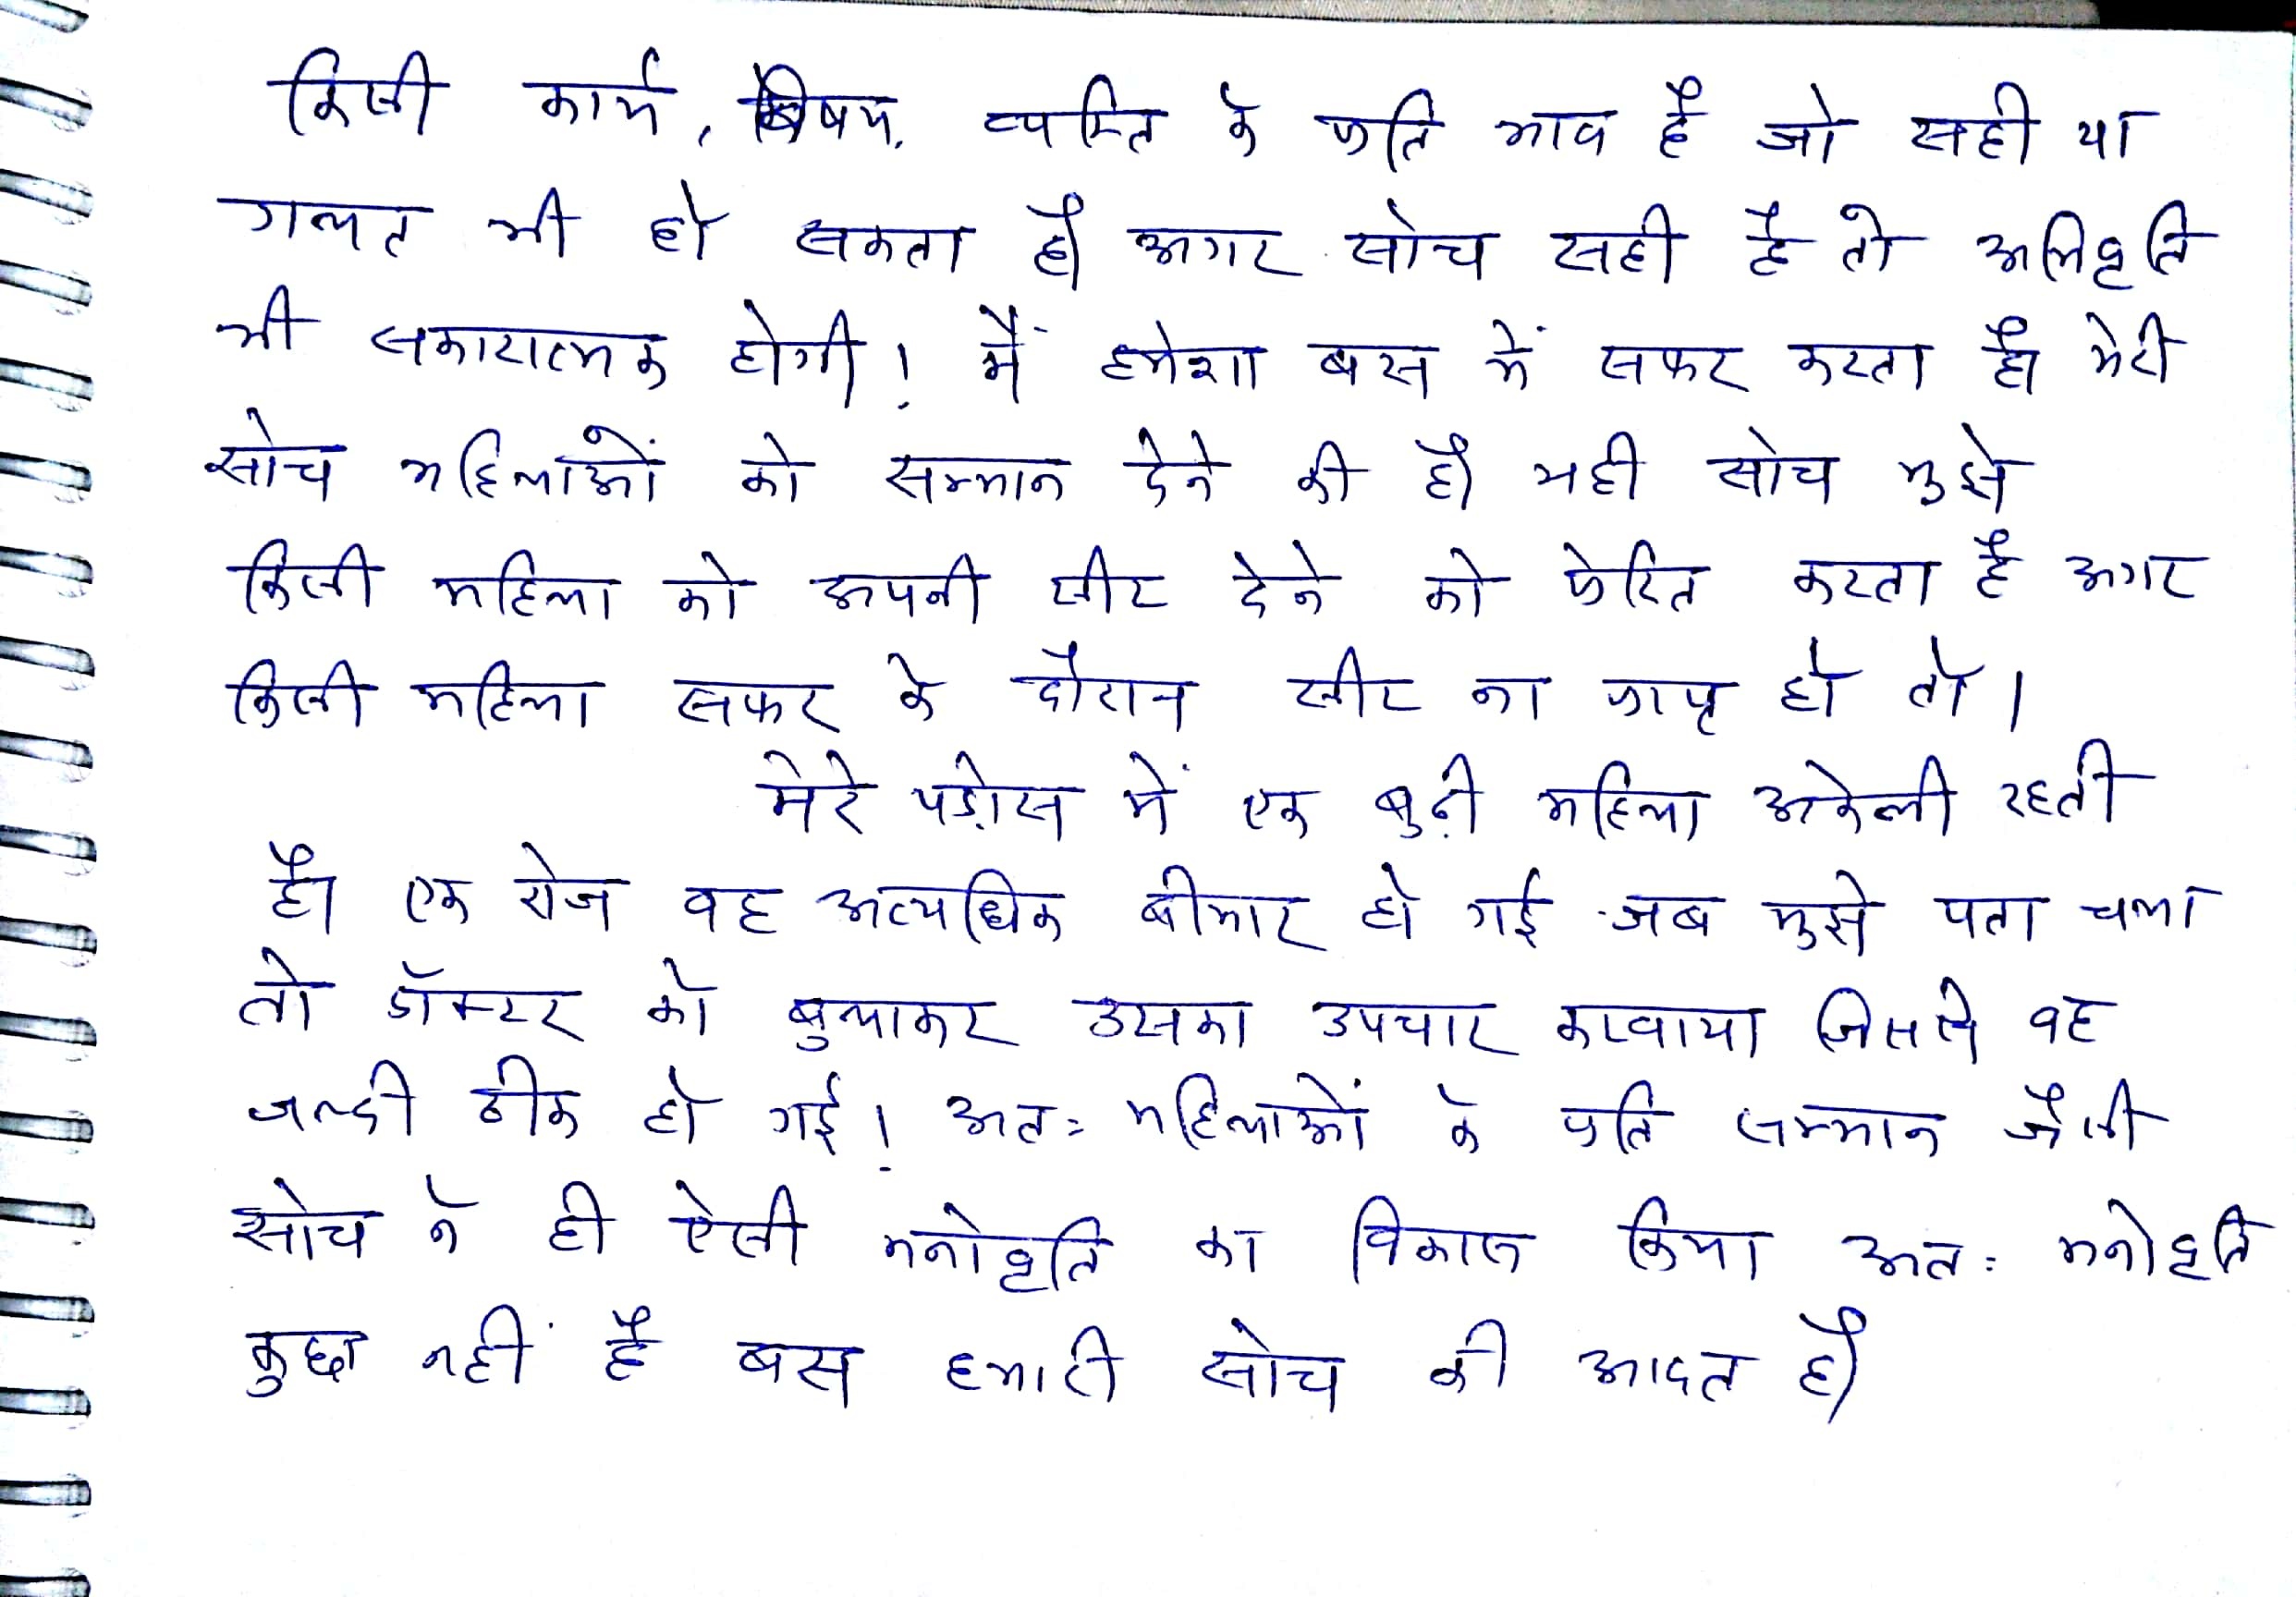 किसी कार्य, विषय, व्यक्ति के प्रति भाव है जो सही या
गलत भी हो सकता है। अगर सोच सही है तो अभिवृति
भी सकारात्मक होगी। मैं हमेशा बस में सफर करता हूँ। मेरी
सोच महिलाओं को सम्मान देने की है। यही सोच मुझे
किसी महिला को अपनी सीट देने को प्रेरित करता है अगर
किसी महिला सफर के दौरान सीट ना प्राप्त हो तो।
मेरे पड़ोस में एक बुढ़ी महिला अकेली रहती
है। एक रोज वह अत्यधिक बीमार हो गई जब मुझे पता चला
तो डॉक्टर को बुलाकर उसका उपचार करवाया जिससे वह
जल्दी ठीक हो गई। अतः महिलाओं के प्रति सम्मान जैसी
सोच ने ही ऐसी मनोवृति का विकास किया अतः मनोवृति
कुछ नहीं है बस हमारी सोच की आदत है।